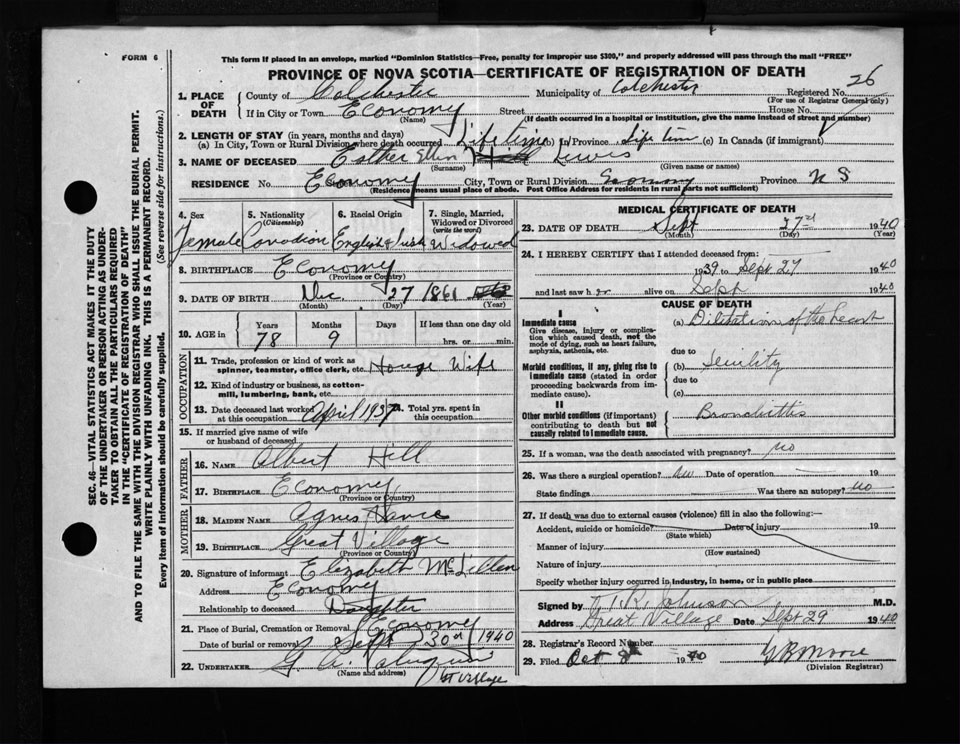 FORM 6
This form if placed in an envelope, marked "Dominion Statistics—Free, penalty for improper use $300," and properly addressed will pass through the mail "FREE"
PROVINCE OF NOVA SCOTIA—CERTIFICATE OF REGISTRATION OF DEATH
1. PLACE OF DEATH
County of Colchester Municipality of Colchester Registered No. 26
(For use of Registrar General only)
If in City or Town Economy Street House No.
(Name) (If death occurred in a hospital or institution, give the name instead of street and number)
2. LENGTH OF STAY (in years, months and days)
(a) In City, Town or Rural Division where death occurred Life time (b) In Province Life time (c) In Canada (if immigrant)
3. NAME OF DECEASED Esther Ellen Lewis
(Surname) (Given name or names)
RESIDENCE No. Economy City, Town or Rural Division Economy Province N S
(Residence means usual place of abode. Post Office Address for residents in rural parts not sufficient)
4. Sex Female
5. Nationality (Citizenship) Canadian
6. Racial Origin English & Irish
7. Single, Married, Widowed or Divorced (write the word) Widowed
8. BIRTHPLACE Economy
(Province or Country)
9. DATE OF BIRTH Dec 27 1861
(Month) (Day) (Year)
10. AGE in Years Months Days If less than one day old
78 9 hrs. or min.
OCCUPATION
11. Trade, profession or kind of work as spinner, teamster, office clerk, etc. House Wife
12. Kind of industry or business, as cotton-mill, lumbering, bank, etc.
13. Date deceased last worked at this occupation April 1937 Total yrs. spent in this occupation
15. If married give name of wife or husband of deceased
FATHER
16. NAME Albert Hill
17. BIRTHPLACE Economy
(Province or Country)
MOTHER
18. MAIDEN NAME Agnes
19. BIRTHPLACE Great Village
(Province or Country)
20. Signature of informant Elizabeth
Address Economy
Relationship to deceased Daughter
21. Place of Burial, Cremation or Removal Economy
Date of burial or removal Sept 30th 1940
22. UNDERTAKER
(Name and address)
MEDICAL CERTIFICATE OF DEATH
23. DATE OF DEATH Sept 27 1940
(Month) (Day) (Year)
24. I HEREBY CERTIFY that I attended deceased from:
1939 to Sept 27 1940
and last saw her alive on Sept 1940
CAUSE OF DEATH
I
Immediate cause
Give disease, injury or complication which caused death, not the mode of dying, such as heart failure, asphyxia, asthenia, etc.
(a) Dilitation of the heart
due to
Morbid conditions, if any, giving rise to immediate cause (stated in order proceeding backwards from immediate cause).
(b) Senility
due to
(c)
II
Other morbid conditions (if important) contributing to death but not causally related to immediate cause.
Bronchittis
25. If a woman, was the death associated with pregnancy? no
26. Was there a surgical operation? no Date of operation 19
State findings Was there an autopsy? no
27. If death was due to external causes (violence) fill in also the following:—
Accident, suicide or homicide? Date of injury 19
(State which)
Manner of injury
(How sustained)
Nature of injury
Specify whether injury occurred in industry, in home, or in public place
Signed by T. R. Johnson M.D.
Address Great Village Date Sept 29 1940
28. Registrar's Record Number
29. Filed Oct 1940 Moore
(Division Registrar)
SEC. 46—VITAL STATISTICS ACT MAKES IT THE DUTY
OF THE UNDERTAKER OR PERSON ACTING AS UNDER-
TAKER TO OBTAIN ALL THE PARTICULARS REQUIRED
IN THE "CERTIFICATE OF REGISTRATION OF DEATH"
AND TO FILE THE SAME WITH THE DIVISION REGISTRAR WHO SHALL ISSUE THE BURIAL PERMIT.
WRITE PLAINLY WITH UNFADING INK. THIS IS A PERMANENT RECORD.
Every item of information should be carefully supplied. (See reverse side for instructions.)